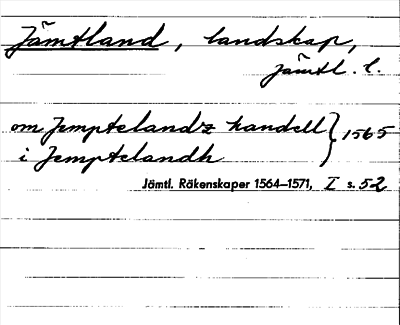 Jämtland, landskap,
Jämtl. l.
om Jempteland'z handell } 1565
i Jemptelandh
Jämtl. Räkenskaper 1564–1571, I s. 52